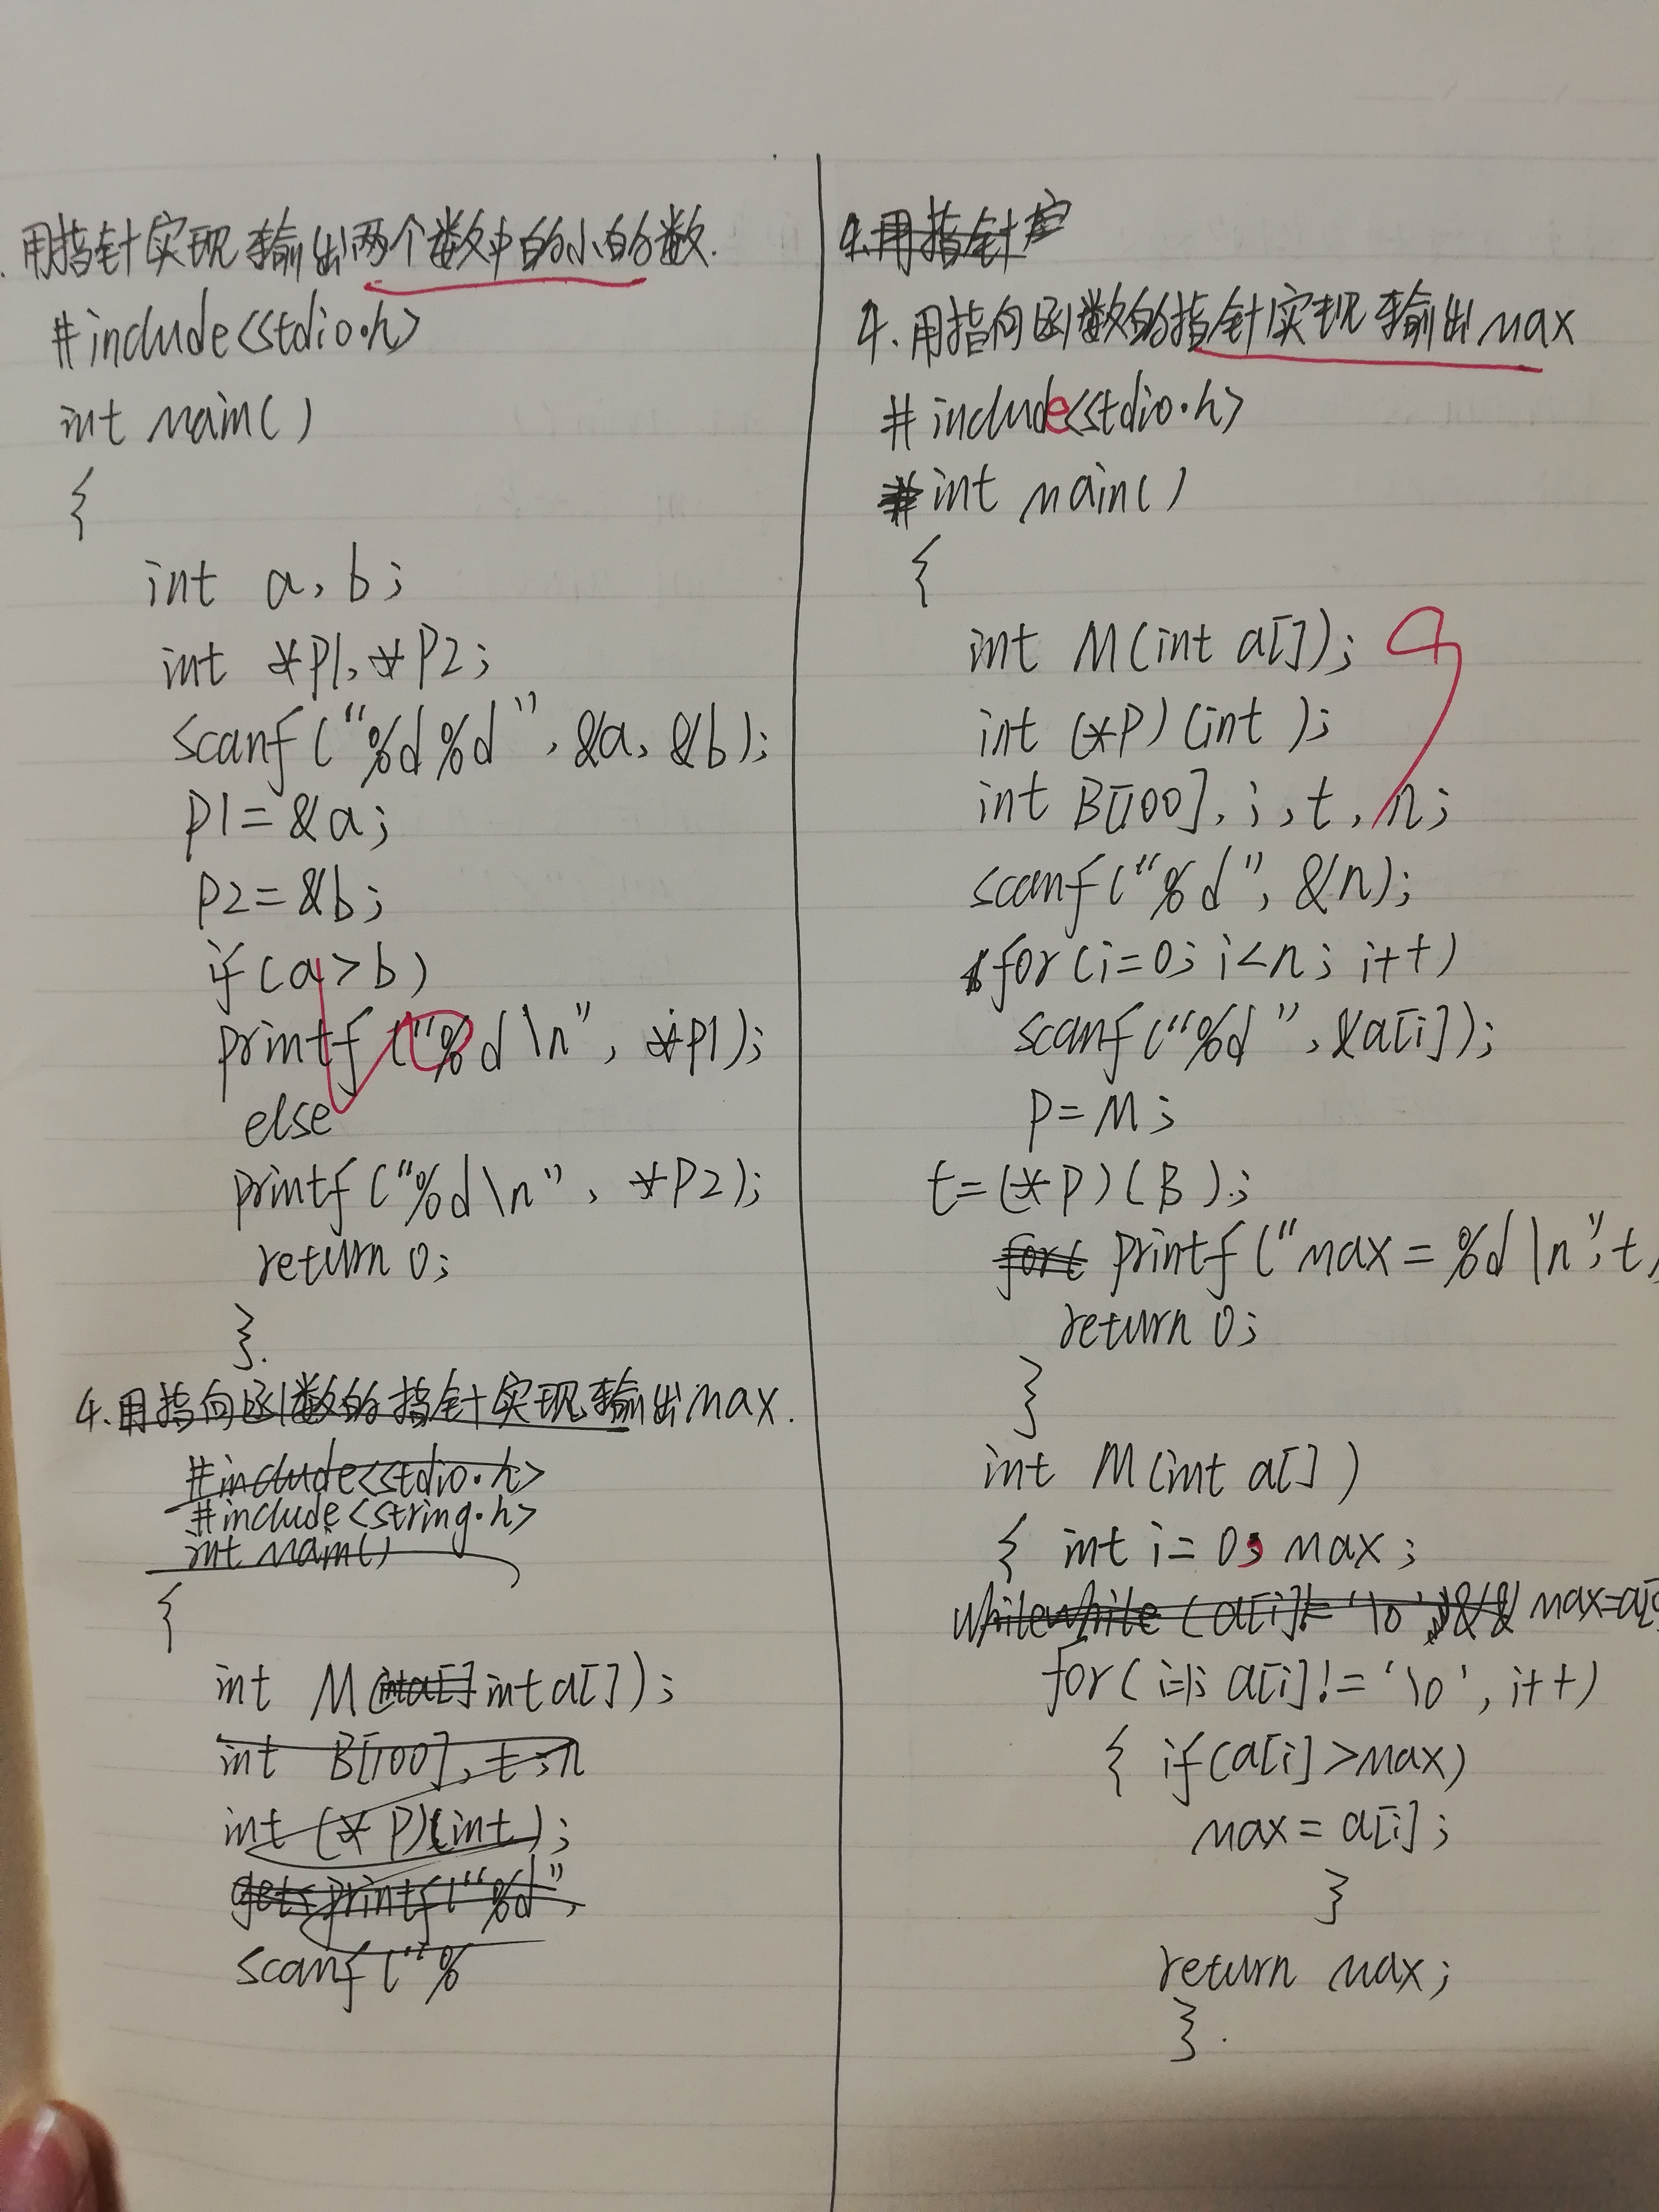 用指针实现输出两个数中的小的数.
#include<stdio.h>
int main()
{
int a, b;
int *P1, *P2;
scanf("%d%d", &a, &b);
P1=&a;
P2=&b;
if(a>b)
printf("%d\n", *P1);
else
printf("%d\n", *P2);
return 0;
}.
4.用指向函数的指针实现输出max.
#include<stdio.h>
#include<string.h>
int main()
{
int M(int a[] int a[]);
int B[100], t, n
int (*P)(int);
gets printf("%d",
scanf("%
4.用指针
4.用指向函数的指针实现输出max
#include<stdio.h>
int main()
{
int M(int a[]);
int (*P)(int );
int B[100], i, t, n;
scanf("%d", &n);
for(i=0; i<n; i++)
scanf("%d", &a[i]);
P=M;
t=(*P)(B);
fort printf("max=%d\n",t
return 0;
}
int M(int a[])
{ int i=0, max;
while while (a[i]!='\0')&& max=a[0
for(i=1; a[i]!='\0', i++)
{ if(a[i]>max)
max=a[i];
}
return max;
}.